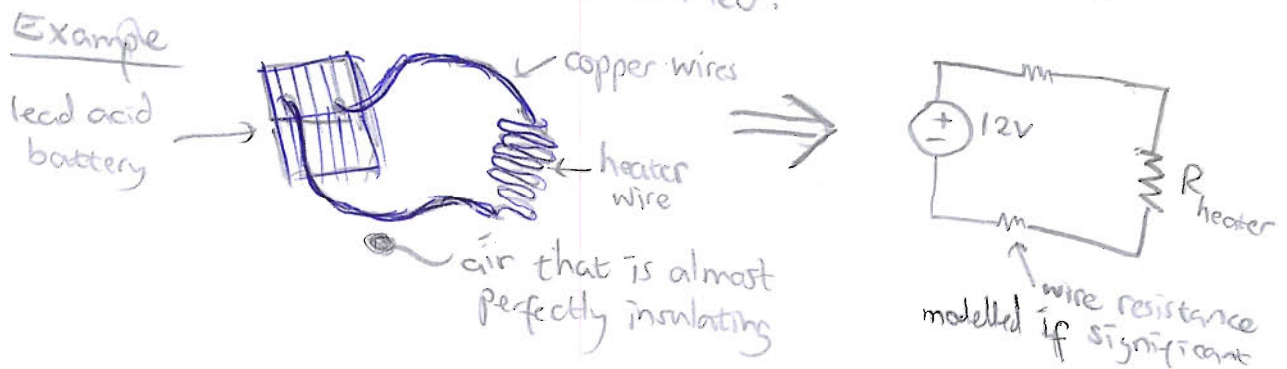 Example
lead acid
battery
copper wires
heater
wire
air that is almost
perfectly insulating
+
-
12V
R
heater
wire resistance
modelled if significant